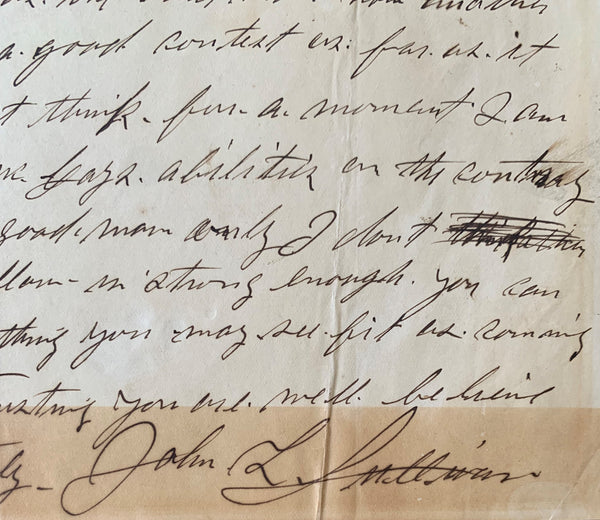 a. good contest as. far. as. it
t think. for. a. moment I am
abilities on the contrary
good. man only I dont
in strong enough. you can
thing you may see. fit as. coming
usting you are. well. believe
John. L. Sullivan